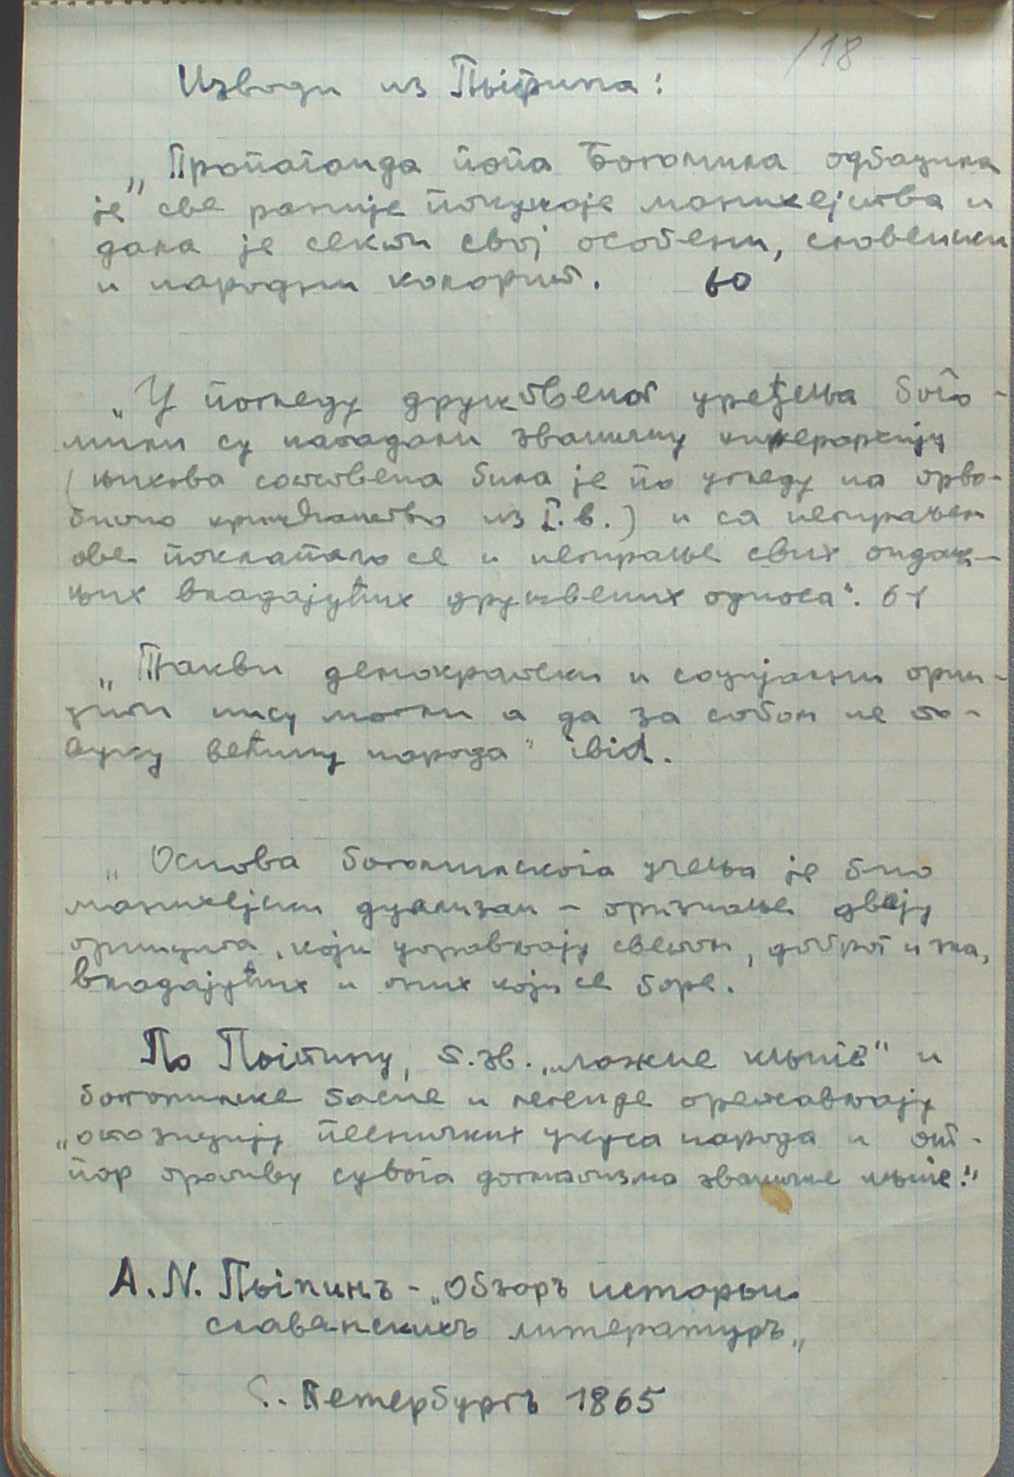 /18
Изводи из Пыпина:
„Пропаганда попа Богомила одбацила
је све раније покушаје манихејства и
дала је секти свој особени, словенски
и народни колорит. 60
„У погледу друштвеног уређења бого-
мили су нападали званичну хијерархију
(њихова састављена била је по угледу на прво-
битно кришћанство из I. в.) и са негирањем
ове поклапало се и негирање свих ондаш-
њих владајућих друшвених односа“. 61
„Такви демократски и социјални прин-
ципи нису могли а да за собом не по-
вуку већину народа“ ibid.
„Основа богомилскога учења је био
манихејски дуализам – признање двеју
принципа, који управљају светом, доброг и зла,
владајућих и оних који се боре.
По Пыпину, т.зв. „ложне књиге“ и
богомилске басне и легенде представљају
„опозицију песничких укуса народа и от-
пор против сувога догматизма званичне књиге.“
А. N. Пыпинъ – „Обзоръ исторыи
славенскихъ литературъ„
С. Петербургъ 1865